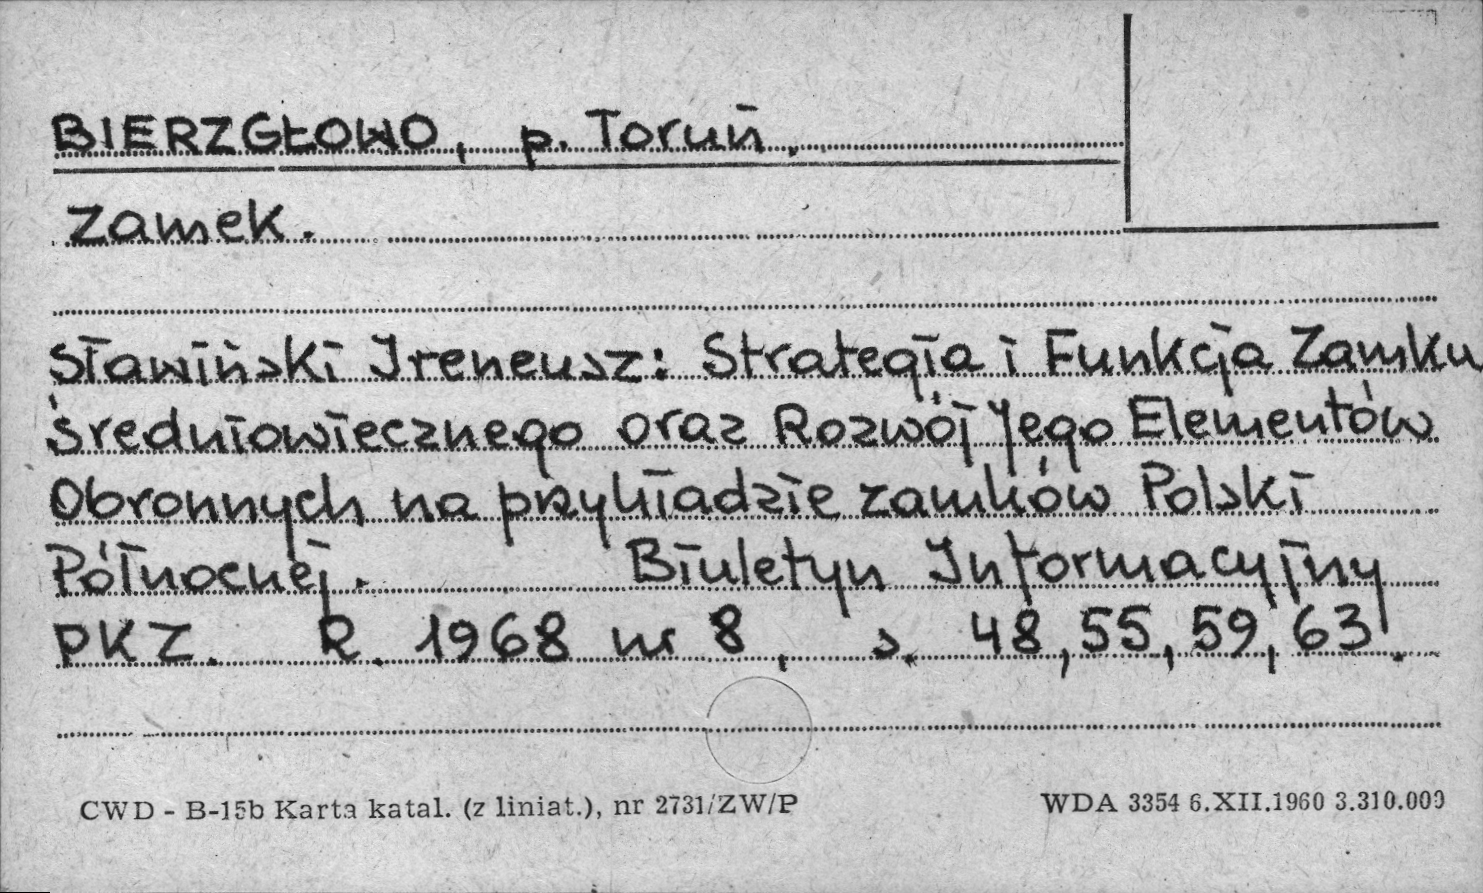 BIERZGŁOWO, p. Toruń.
Zamek.
Sławiński Ireneusz: Strategia i Funkcja Zamku
Średniowiecznego oraz Rozwój Jego Elementów
Obronnych na przykładzie zamków Polski
Północnej. Biuletyn Informacyjny
PKZ. R. 1968 nr 8, s. 48, 55, 59, 63.
CWD - B-15b Karta katal. (z liniat.), nr 2731/ZW/P
WDA 3354 6.XII.1960 3.310.000